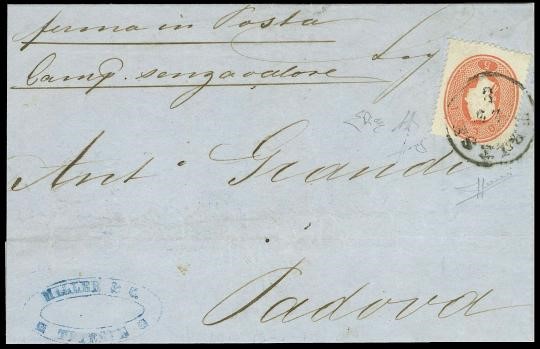 ferma in Posta
Camp. senza valore
Sig
Ant. Grandi
Padova
MILLER & C.
TRIESTE